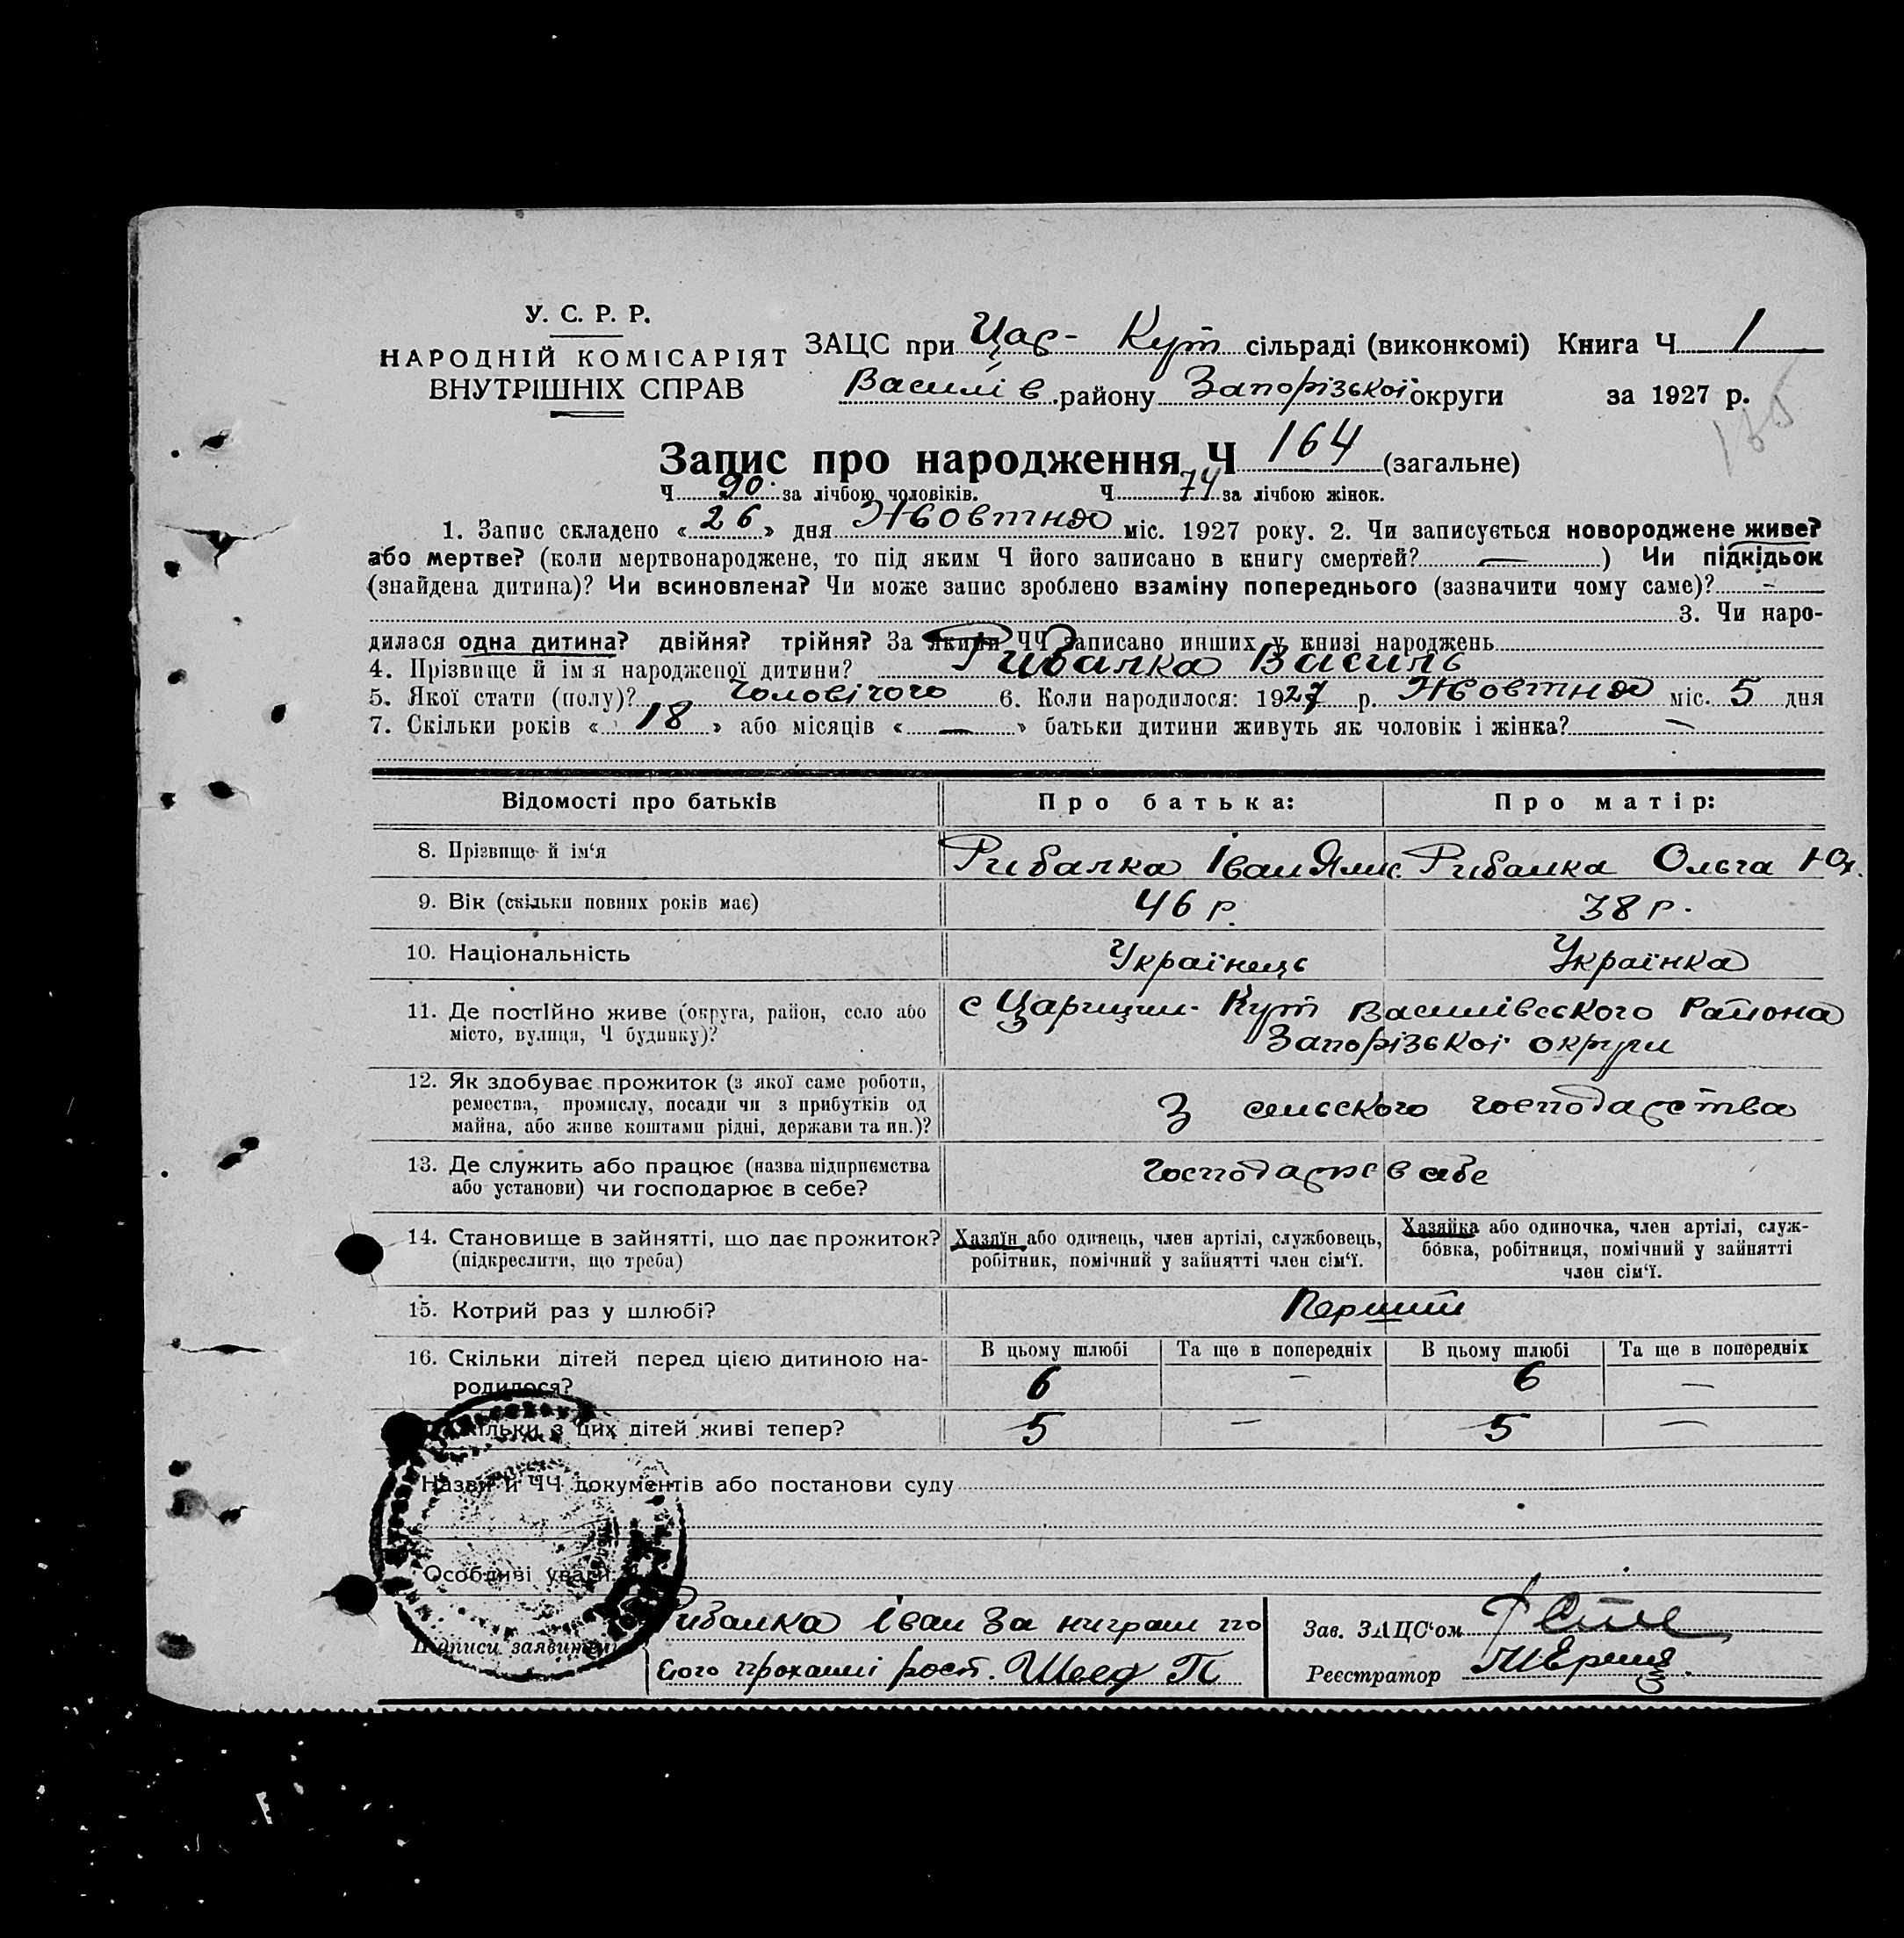 У. С. Р. Р.
НАРОДНІЙ КОМІСАРІЯТ
ВНУТРІШНІХ СПРАВ
ЗАЦС при Цар- Кут сільраді (виконкомі) Книга Ч 1
Василів району Запорізької округи за 1927 р.
165
Запис про народження Ч 164 (загальне)
Ч 90 за лічбою чоловіків. Ч 74 за лічбою жінок.
1. Запис складено «26» дня Жовтня міс. 1927 року. 2. Чи записується новороджене живе?
або мертве? (коли мертвонароджене, то під яким Ч його записано в книгу смертей? —) Чи підкідьок
(знайдена дитина)? Чи всиновлена? Чи може запис зроблено взаміну попереднього (зазначити чому саме)? –
3. Чи наро-
дилася одна дитина? двійня? трійня? За якими ЧЧ записано инших у книзі народжень
4. Прізвище й ім'я народженої дитини? Рибалка Василь
5. Якої стати (полу)? чоловічого 6. Коли народилося: 1927 р. Жовтня міс. 5 дня
7. Скільки років «18» або місяців «—» батьки дитини живуть як чоловік і жінка? —
Відомості про батьків Про батька: Про матір:
8. Прізвище й ім'я Рибалка Іван Рибалка Ольга
9. Вік (скільки повних років має) 46 р. 38 р.
10. Національність Українець Українка
11. Де постійно живе (округа, район, село або
місто, вулиця, Ч будинку)?
с Царицин- Кут Василівського Района
Запорізькоі округи
12. Як здобуває прожиток (з якої саме роботи,
ремества, промислу, посади чи з прибутків од
майна, або живе коштами рідні, держави та ин.)?
З сельского господарства
13. Де служить або працює (назва підприємства
або установи) чи господарює в себе?
господарює в себе
14. Становище в зайнятті, що дає прожиток?
(підкреслити, що треба)
Хазяїн або одинець, член артілі, службовець,
робітник, помічний у зайнятті член сім'ї.
Хазяйка або одиночка, член артілі, служ-
бовка, робітниця, помічний у зайнятті
член сім'ї.
15. Котрий раз у шлюбі? Перший
16. Скільки дітей перед цією дитиною на-
родилося?
В цьому шлюбі Та ще в попередніх В цьому шлюбі Та ще в попередніх
6 – 6 —
Скільки з цих дітей живі тепер? 5 – 5 –
Назви й ЧЧ документів або постанови суду
Особливі уваги:
Підписи заявителів
Рибалка Іван За ниграм по
Єого проханні рост. Швед П
Зав. ЗАЦС'ом
Реєстратор